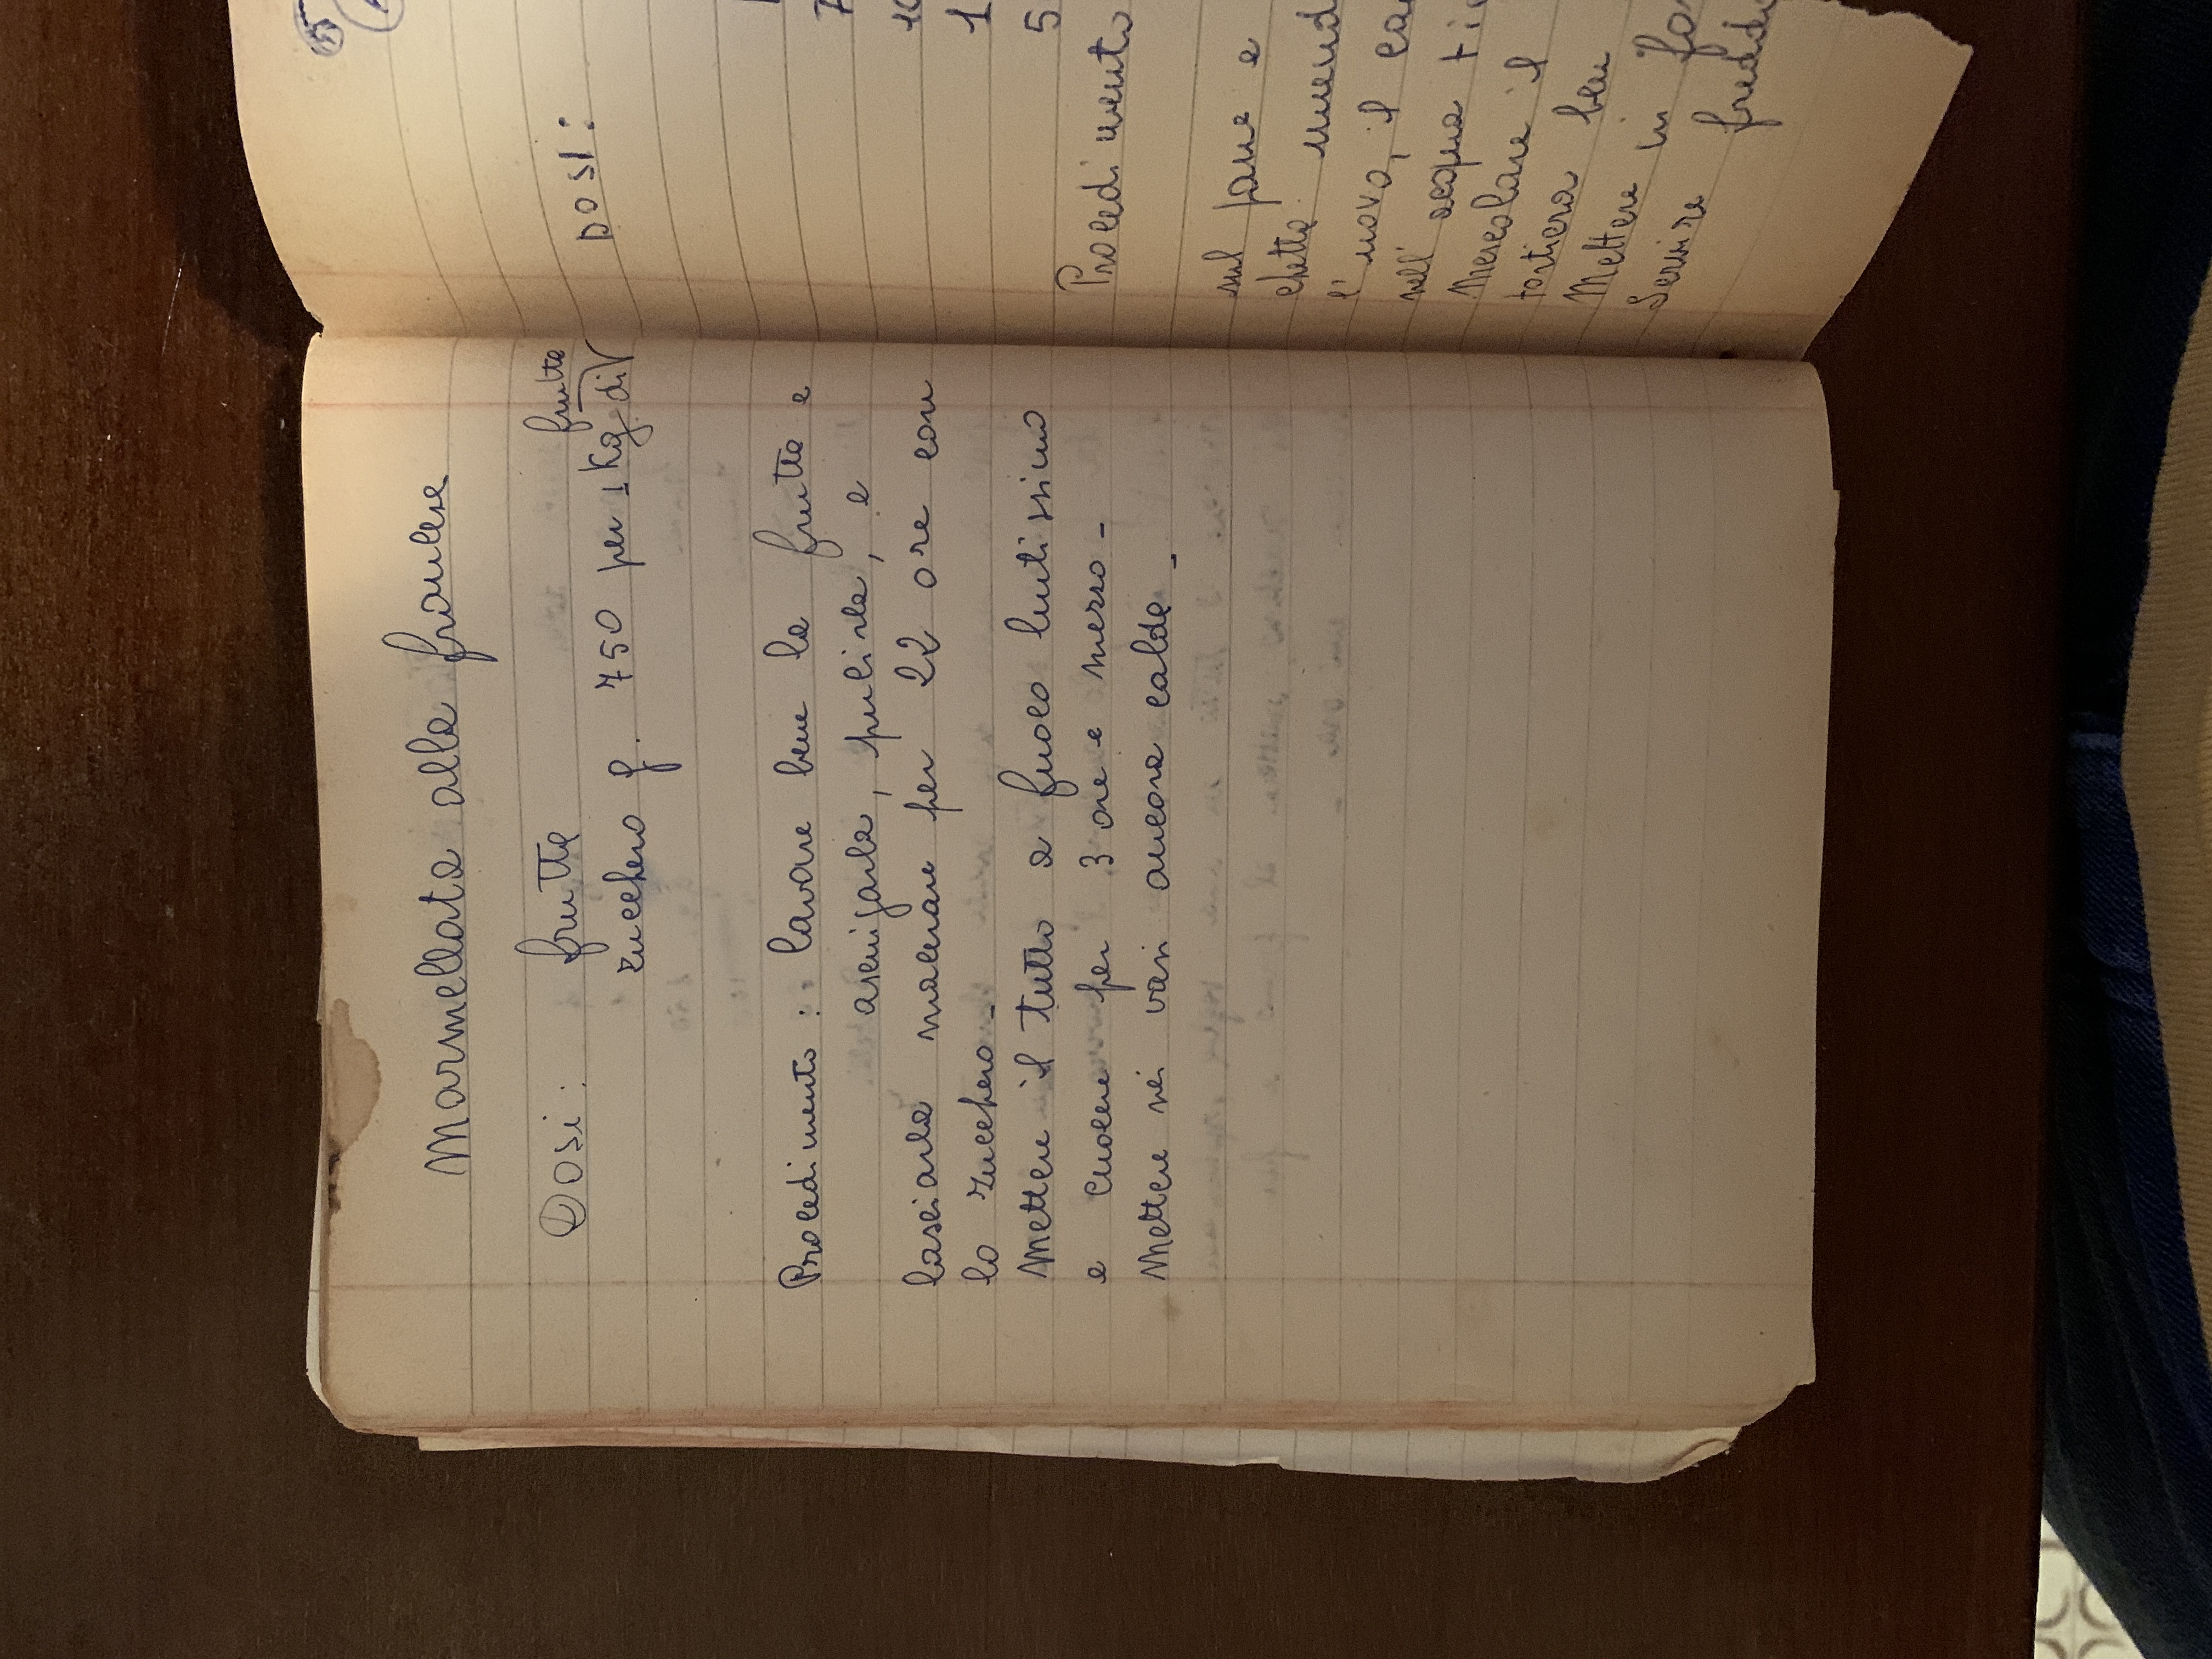 Marmellata alla francese
Dosi: frutta
zucchero g. 750 per 1 Kg di frutta
Procedimento: lavare bene la frutta e
asciugarla, pulirla, e
lasciarla macerare per 22 ore con
lo zucchero -
Mettere il tutto a fuoco lentissimo
e cuocere per 3 ore e mezzo -
Mettere nei vasi ancora calda -
DOSI:
7
1
5
Procedimento
sul pane e
chetta
l'uovo, il
nell' acqua
Mescolare il
tortiera ben
Mettere in
Servire